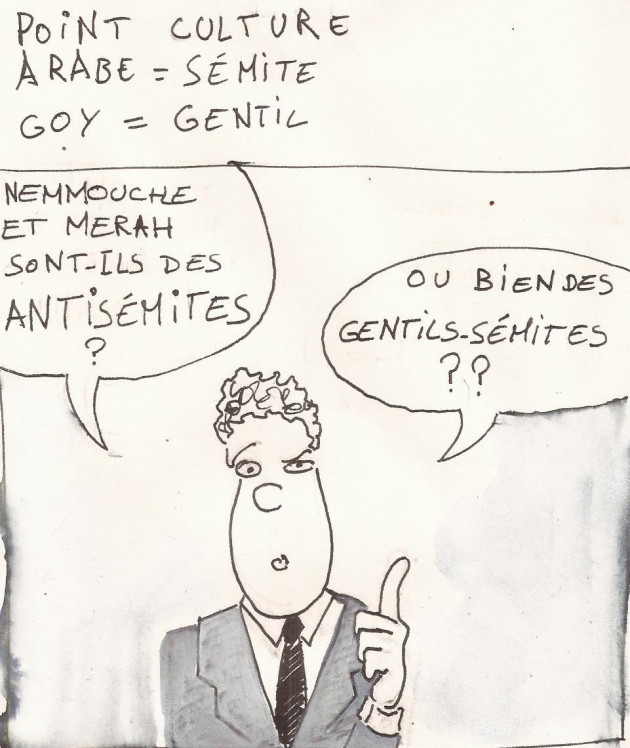 POINT CULTURE
ARABE = SÉMITE
GOY = GENTIL
NEMMOUCHE
ET MERAH
SONT-ILS DES
ANTISÉMITES
?
OU BIEN DES
GENTILS-SÉMITES
??